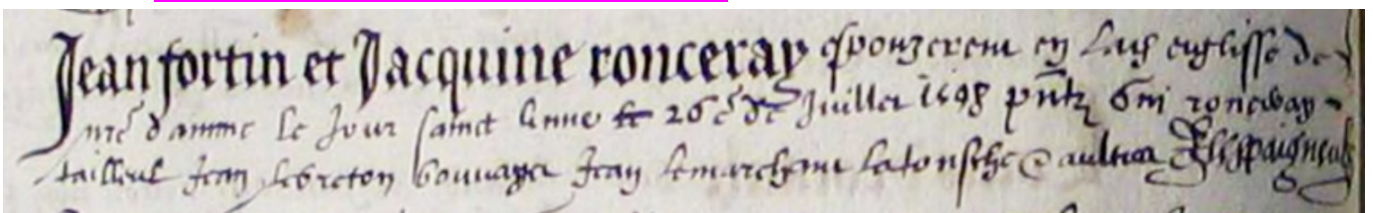 Jean fortin et Jacquine ronceray espouzerent en lad eglisse de
nre damme le Jour sainct Anne 26e de Juillet 1598 pntz ronceray
tailleul Jean lebreton Jean lemarchant latousche & aultres Lespaigneul